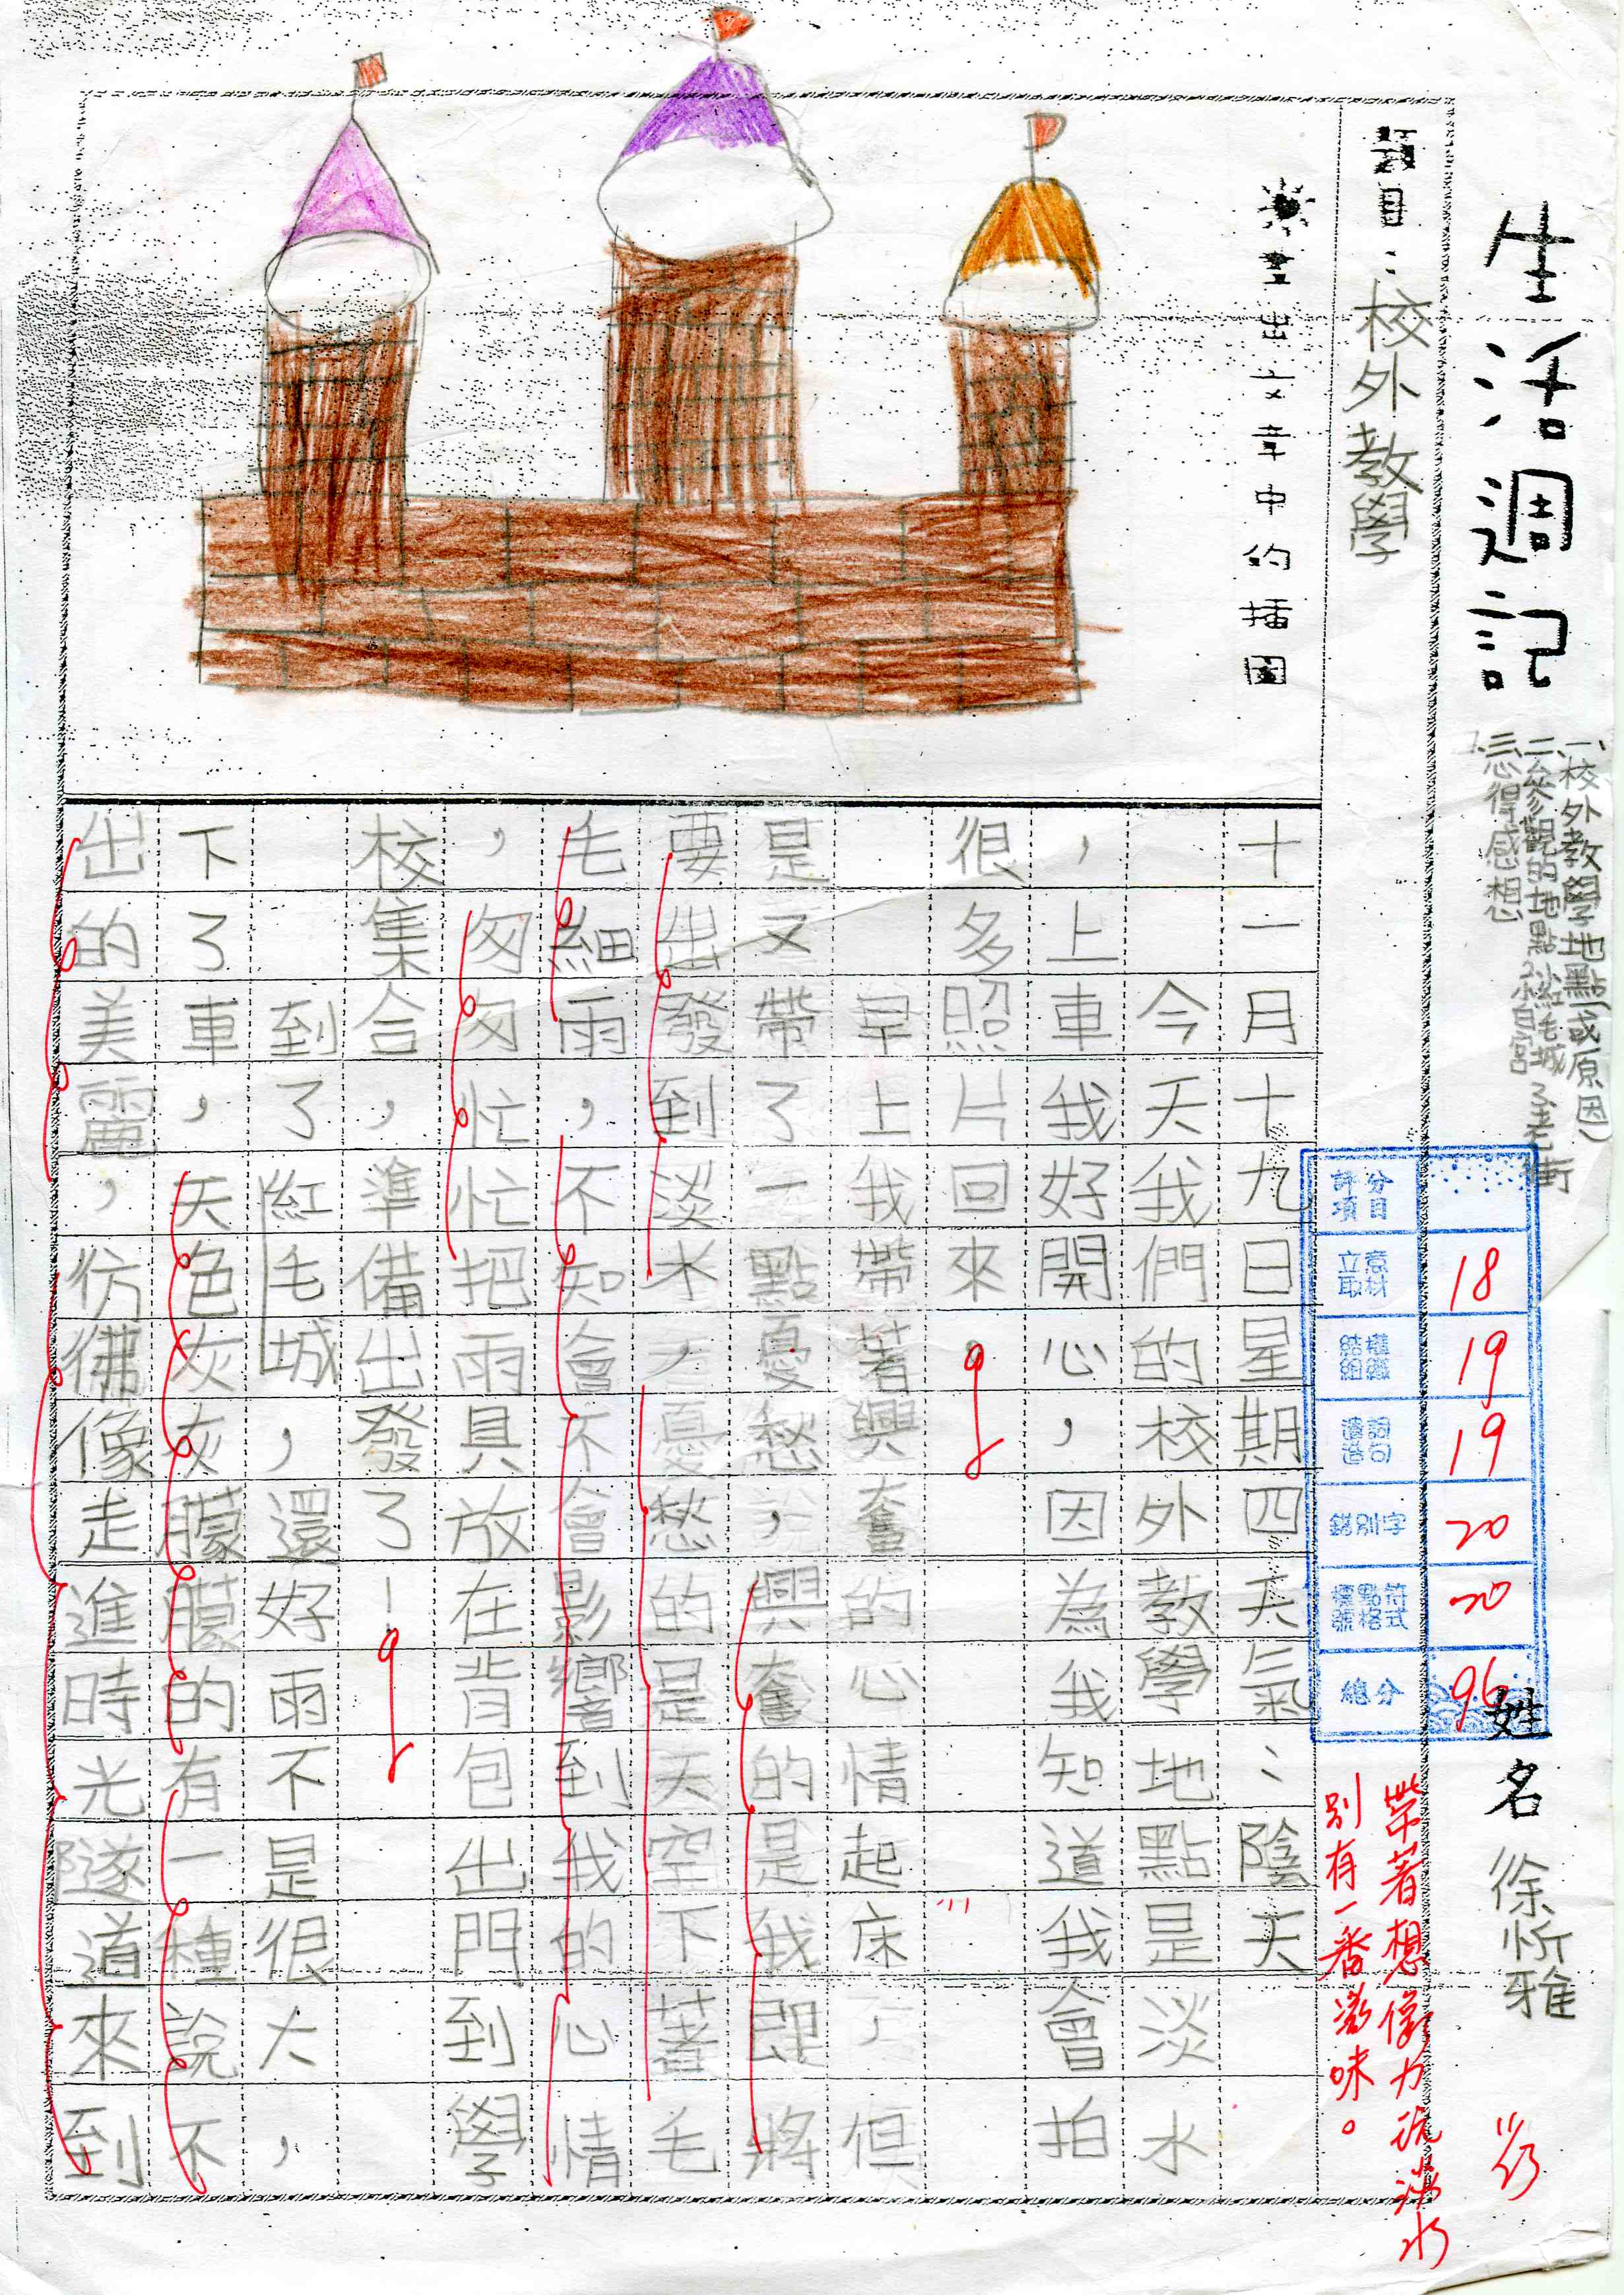 生活週記
一、校外教學地點(或原因)
二、參觀的地點 紅毛城 小白宮
三、心得感想
姓名 徐忻雅
題目：校外教學
畫出文章中的插圖
十一月十九日星期四天氣：陰天
今天我們的校外教學地點是淡水
，上車我好開心，因為我知道我會拍
很多照片回來
早上我帶著興奮的心情起床，但
是又帶了一點憂愁，興奮的是我即將
要出發到淡水，憂愁的是天空下著毛
毛細雨，不知會不會影響到我的心情
，匆匆忙忙把雨具放在背包出門到學
校集合，準備出發了！
到了紅毛城，還好雨不是很大，
下了車，天色灰灰朦朦的有一種說不
出的美麗，彷彿像走進時光隧道來到
評分項目
立意取材 18
結構組織 19
遣詞造句 19
錯別字 20
標點符號格式 20
總分 96
帶著想像力玩淡水
別有一番滋味。